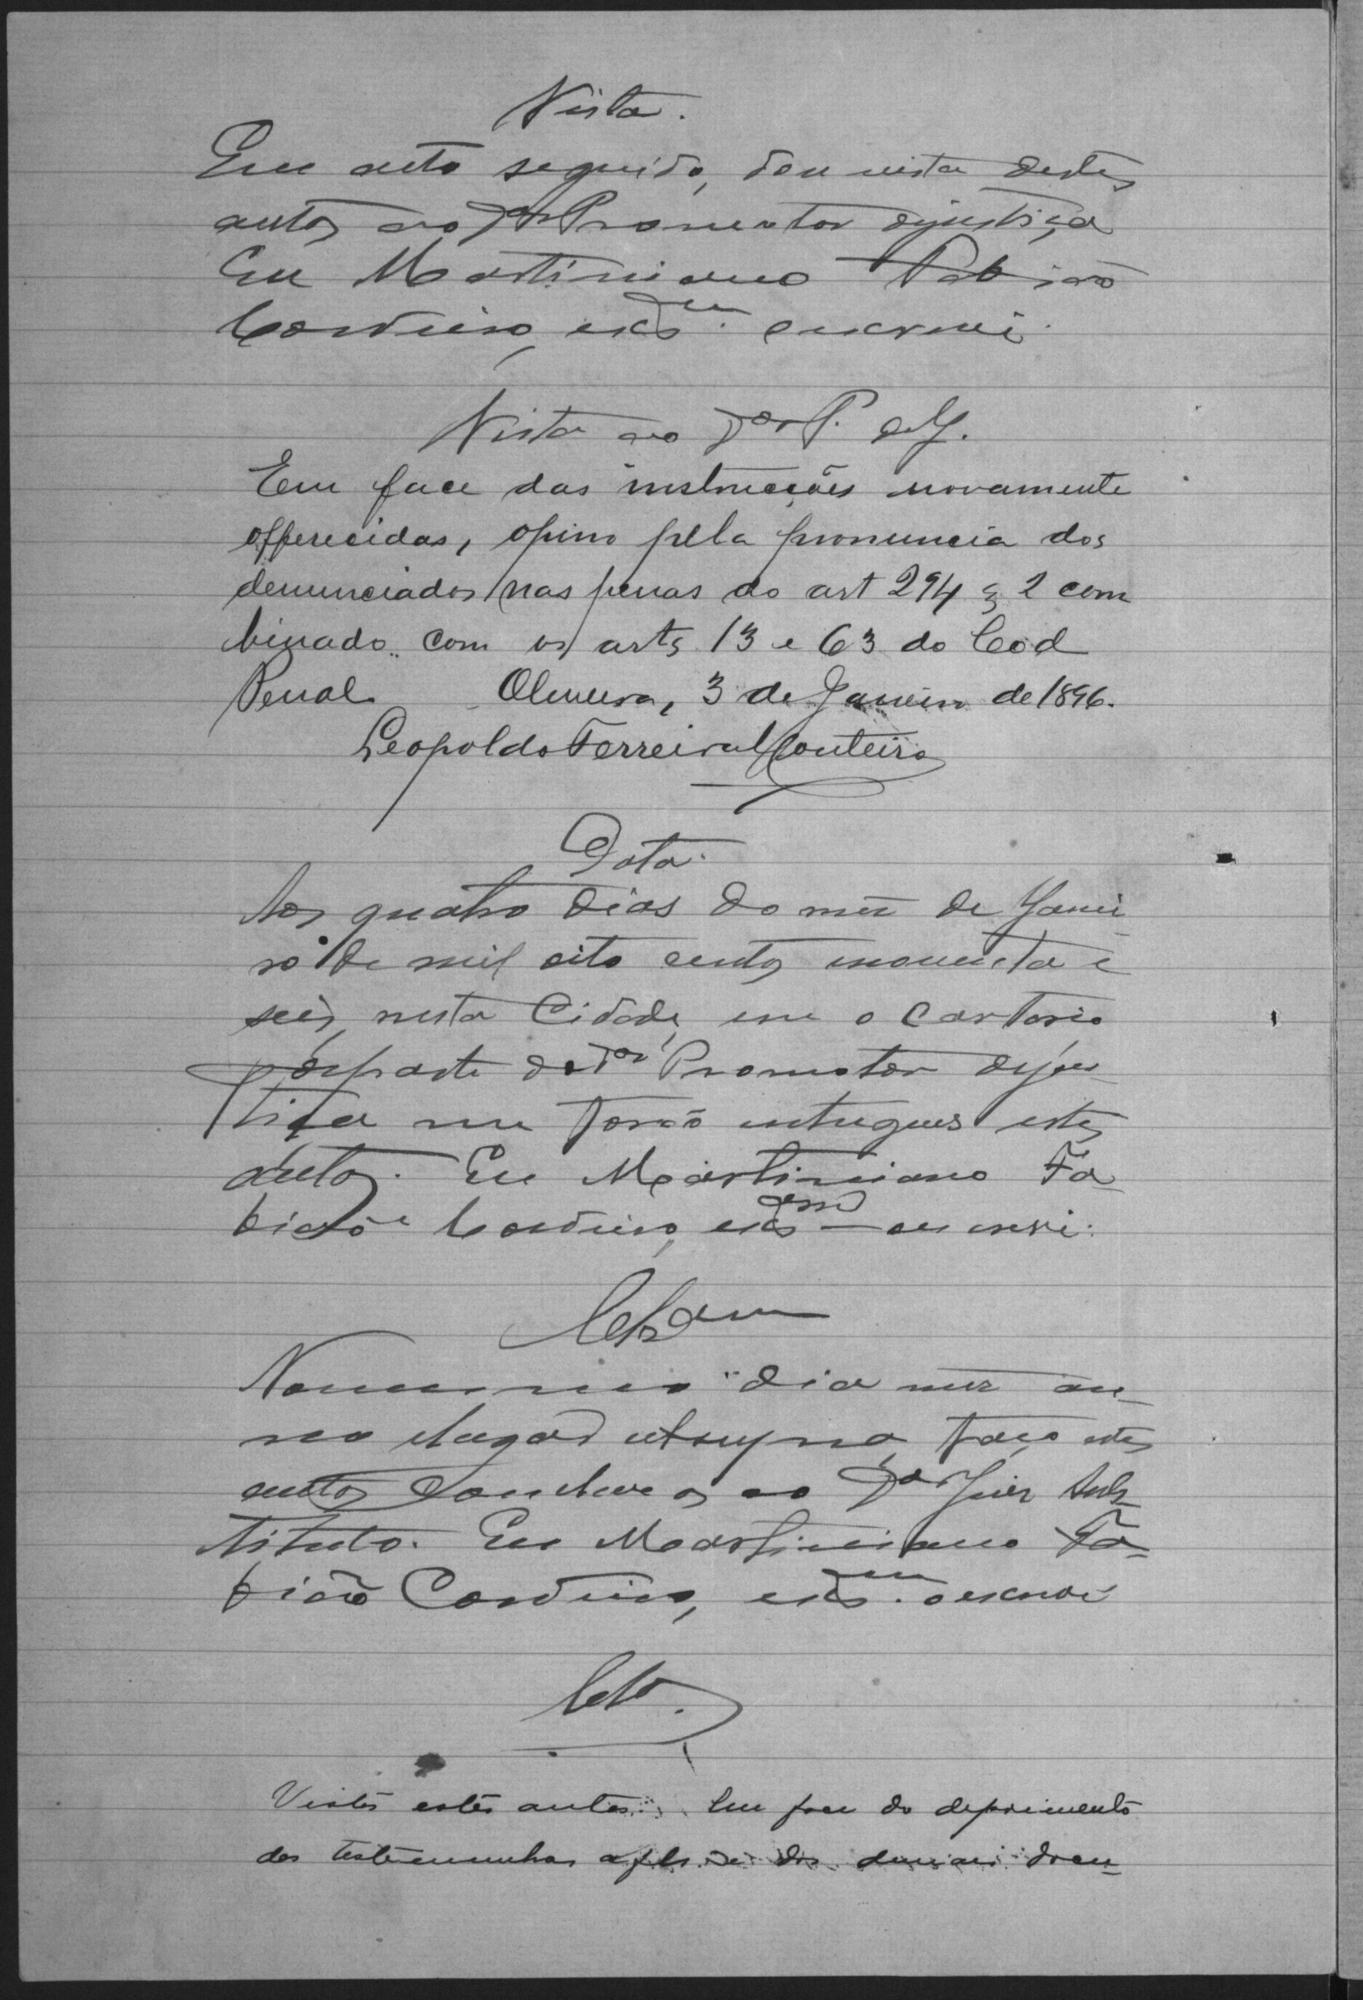 Vista.
Em acto seguido, dou vista destes
autos ao Dor Promotor dejustiça
Eu Martiniano Fabião
Cordeiro, escm. o escrevi.
Vista ao Dor P. de J.
Em face das instrucções novamente
offerecidas, opino pela pronuncia dos
denunciados nas penas do art 294 § 2 com
binado com os arts 13 e 63 do Cod
Penal Oliveira, 3 de Janeiro de 1896.
Leopoldo Ferreira Monteiro
Data.
Aos quatro dias do mez de Janei
ro de mil oito centos noventa e
seis, nesta Cidade, em o Cartorio
por parte do Dor Promotor dejus
tiça me forão entregues estes
autos. Eu Martiniano Fa
bião Cordeiro, escm o escrevi.
Clsam
No mesmo dia mez an
no e lugar retro, faço estes
autos conclusos ao Dor Juiz Subs
tituto. Eu Martiniano Fa
bião Cordeiro, escm. o escrevi
Cls.
Vistos estes autos. Em face do depoimento
das testemunhas a fls e dos demais docu